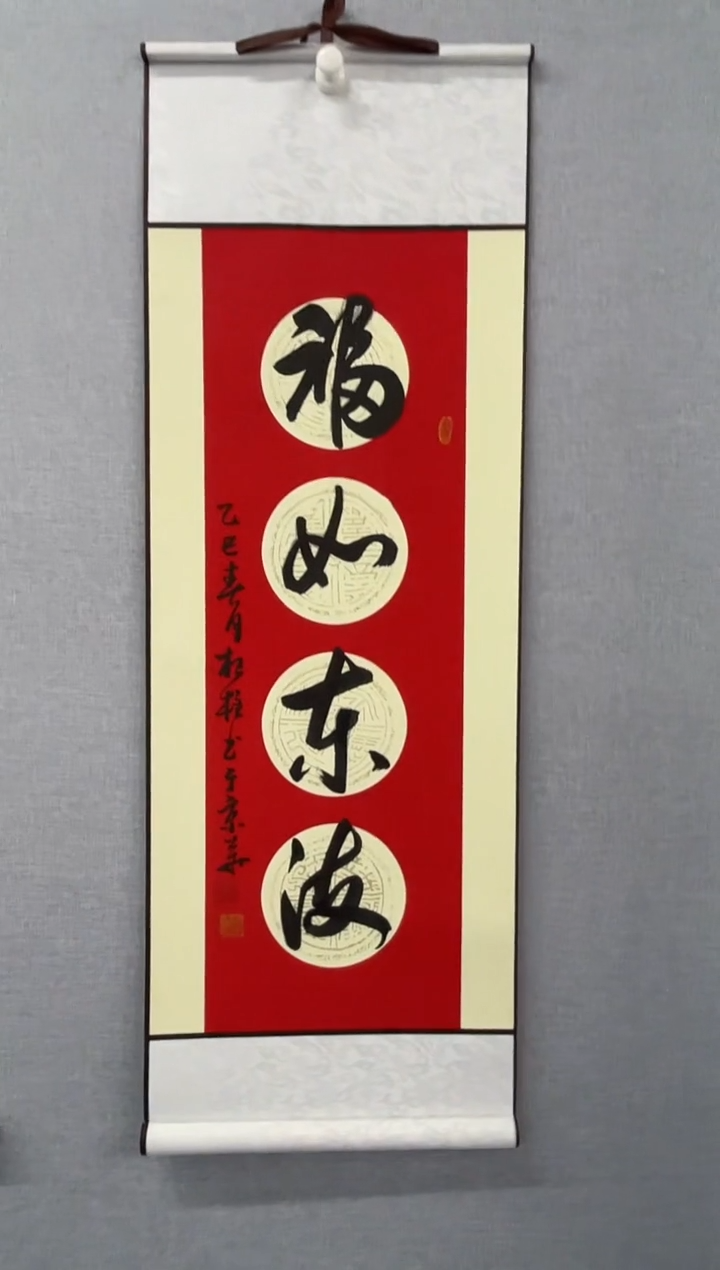 福如东海
乙巳春月松柱书于京华